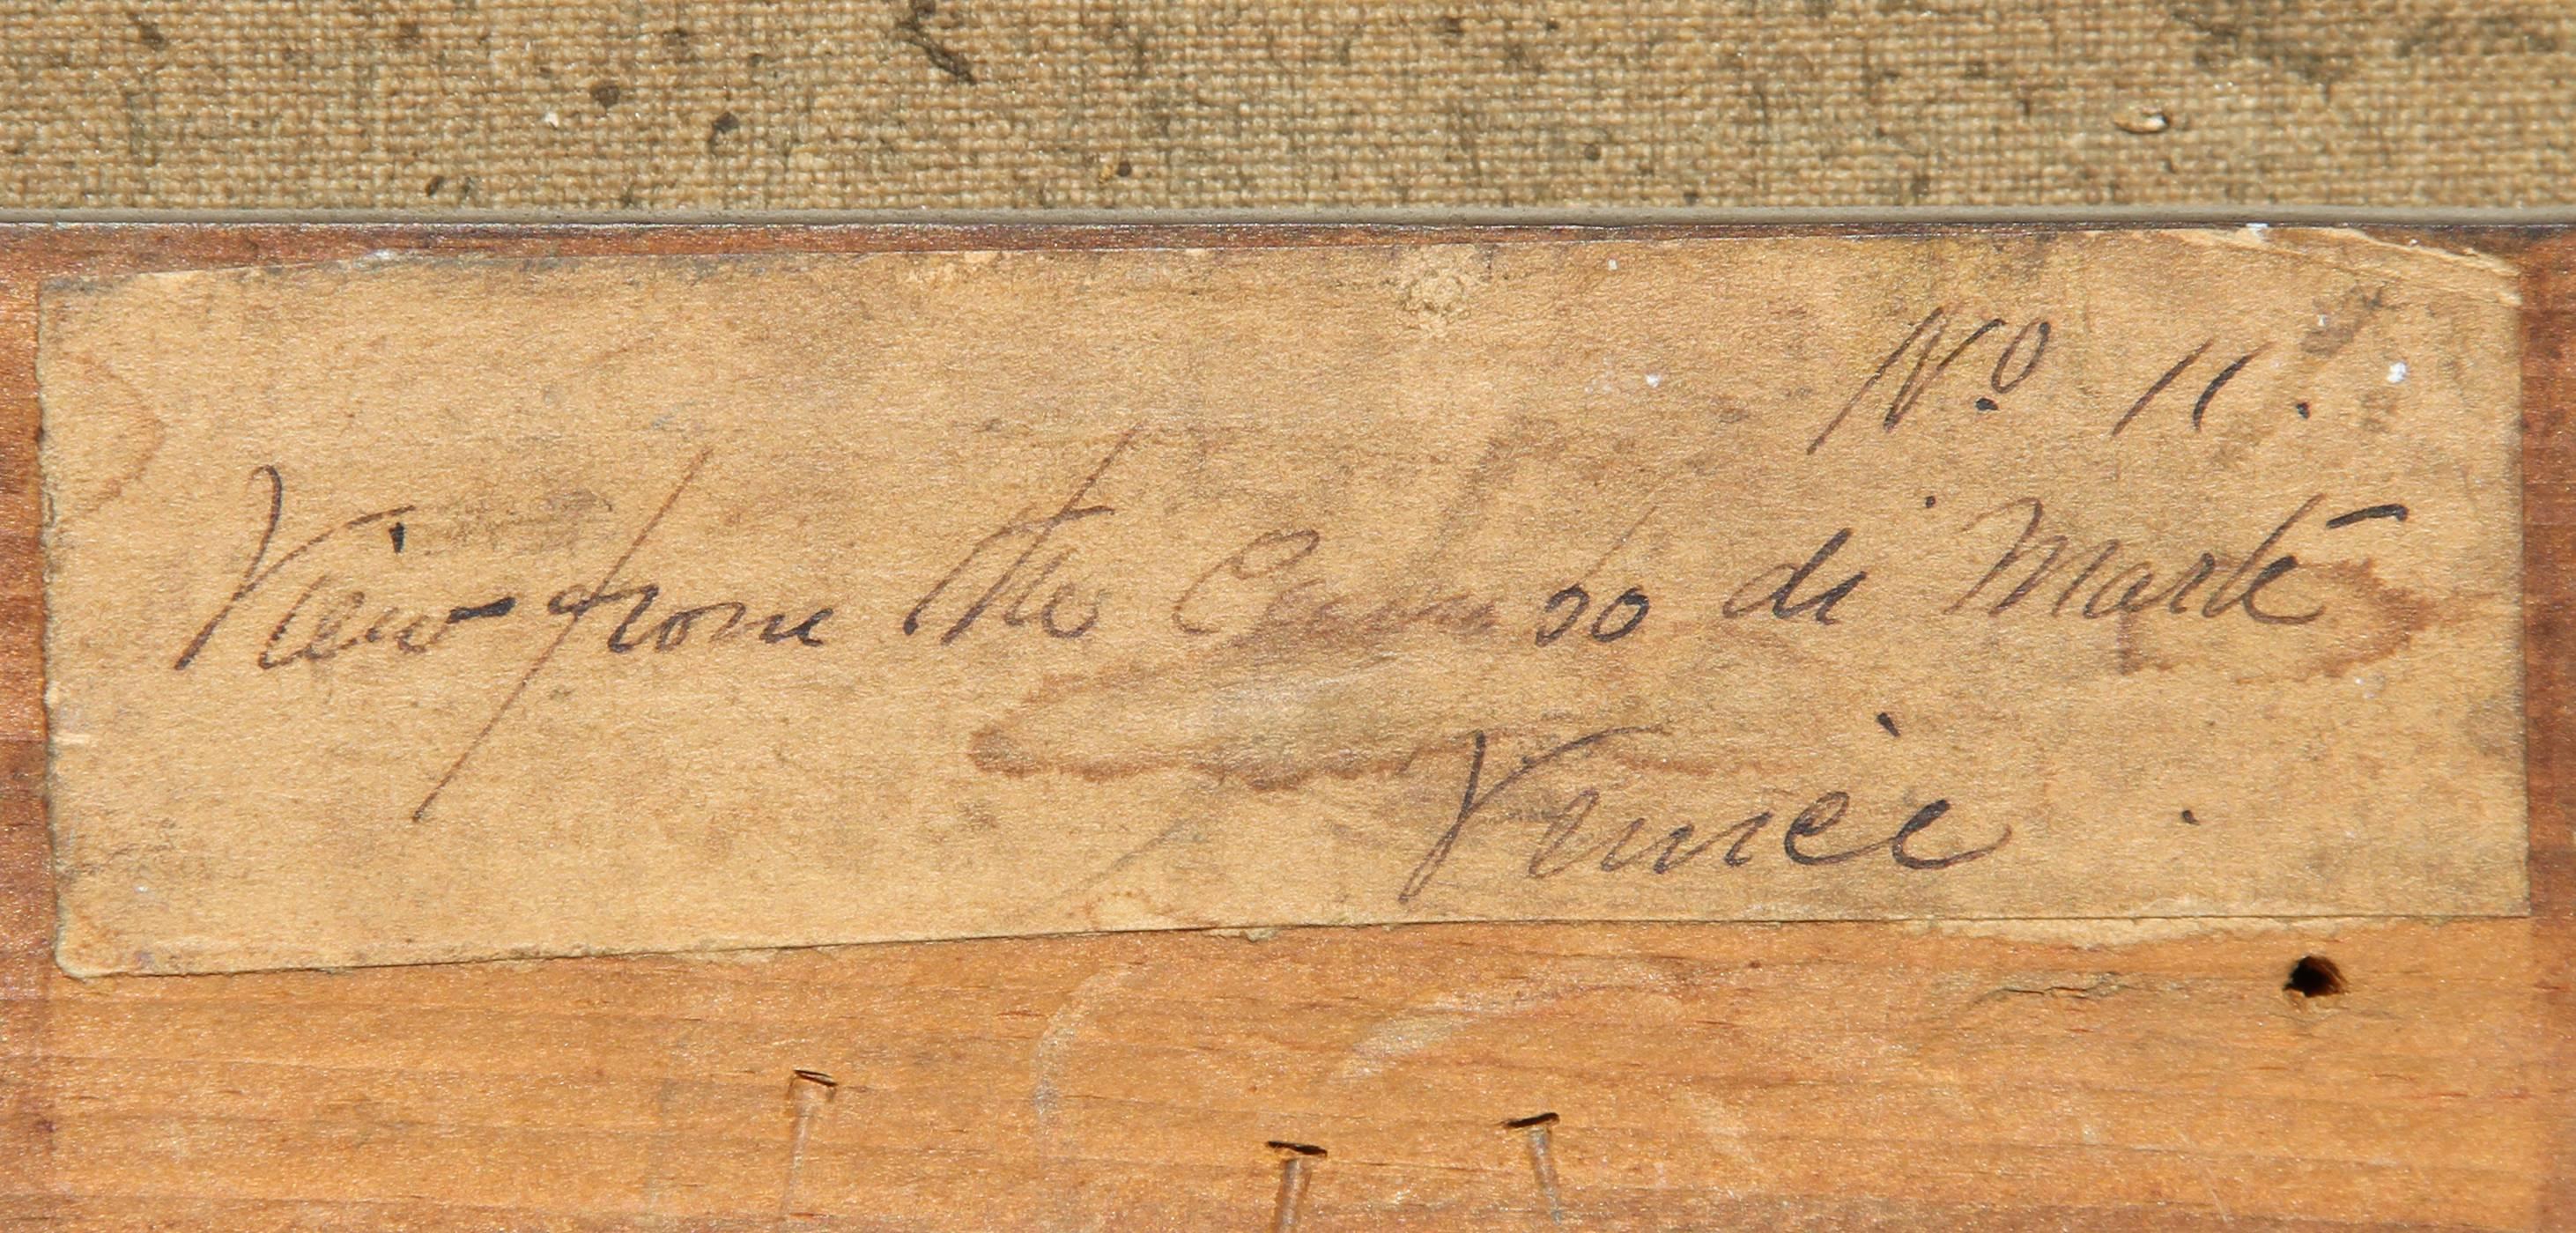 Nº 11.
View from the Campo di Marte
Venice.